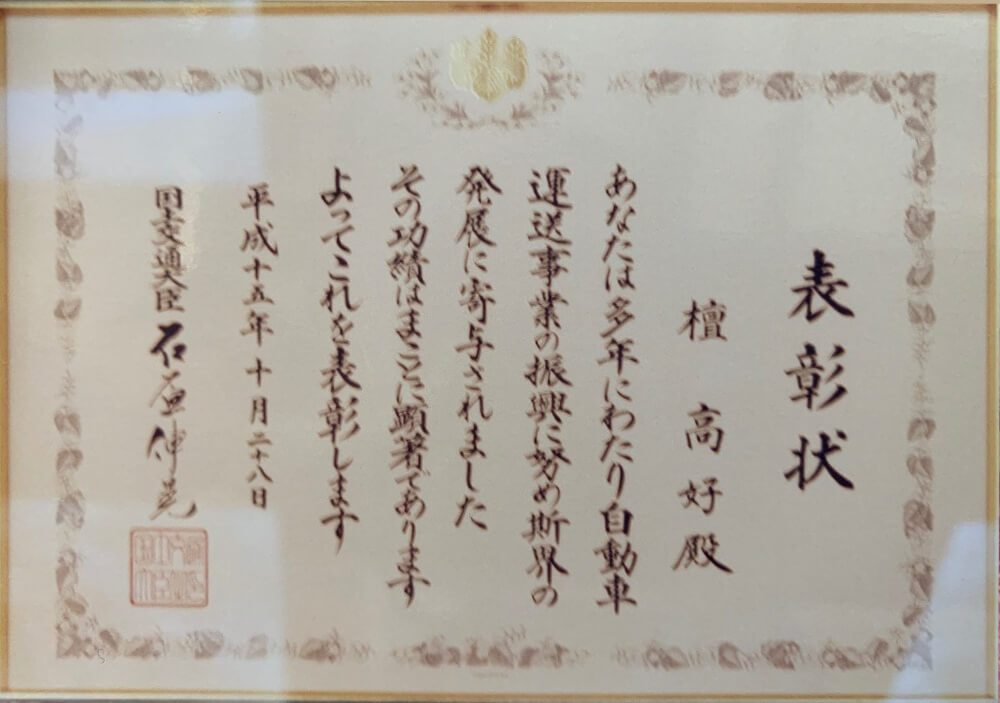 表彰状
檀 高好殿
あなたは多年にわたり自動車
運送事業の振興に努め斯界の
発展に寄与されました
その功績はまことに顕著であります
よってこれを表彰します
平成十五年十月二十八日
国土交通大臣 石原伸晃